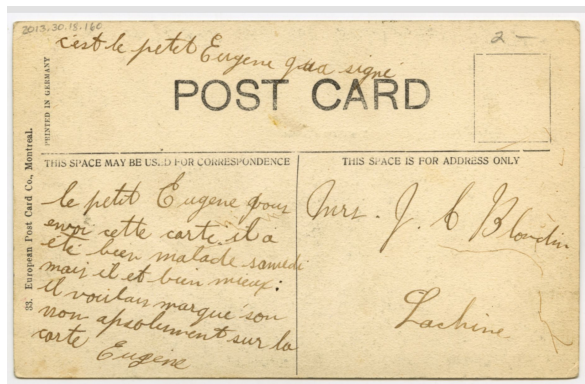 2013.30.15.160
2 —
c'est le petit Eugene qua signé
POST CARD
PRINTED IN GERMANY
33. European Post Card Co., Montreal.
THIS SPACE MAY BE USED FOR CORRESPONDENCE
THIS SPACE IS FOR ADDRESS ONLY
le petit Eugene vous
envoi cette carte il a
eté bien malade samedi
mais il et bien mieux:
il voulais marqué son
nom apsolument sur la
carte Eugene
Mrs. J. C Blondin
Lachine